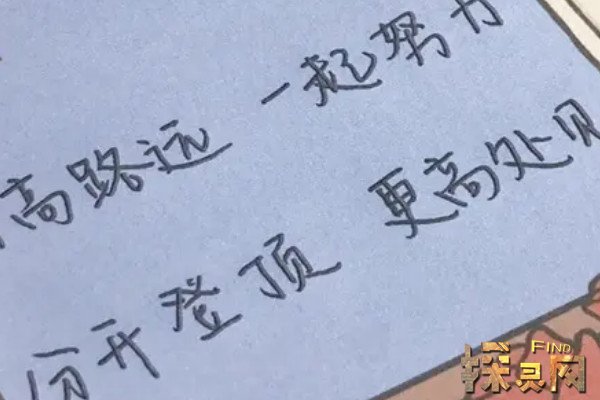 高路远 一起努力
分开登顶 更高处见
FIND
探灵网